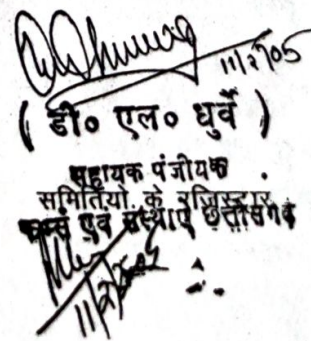 11/2/05
( डी० एल० धुर्वे )
सहायक पंजीयक
समितियों के रजिस्ट्रार
फर्म्स एवं संस्थाएं छत्तीसगढ़
11/2/2005